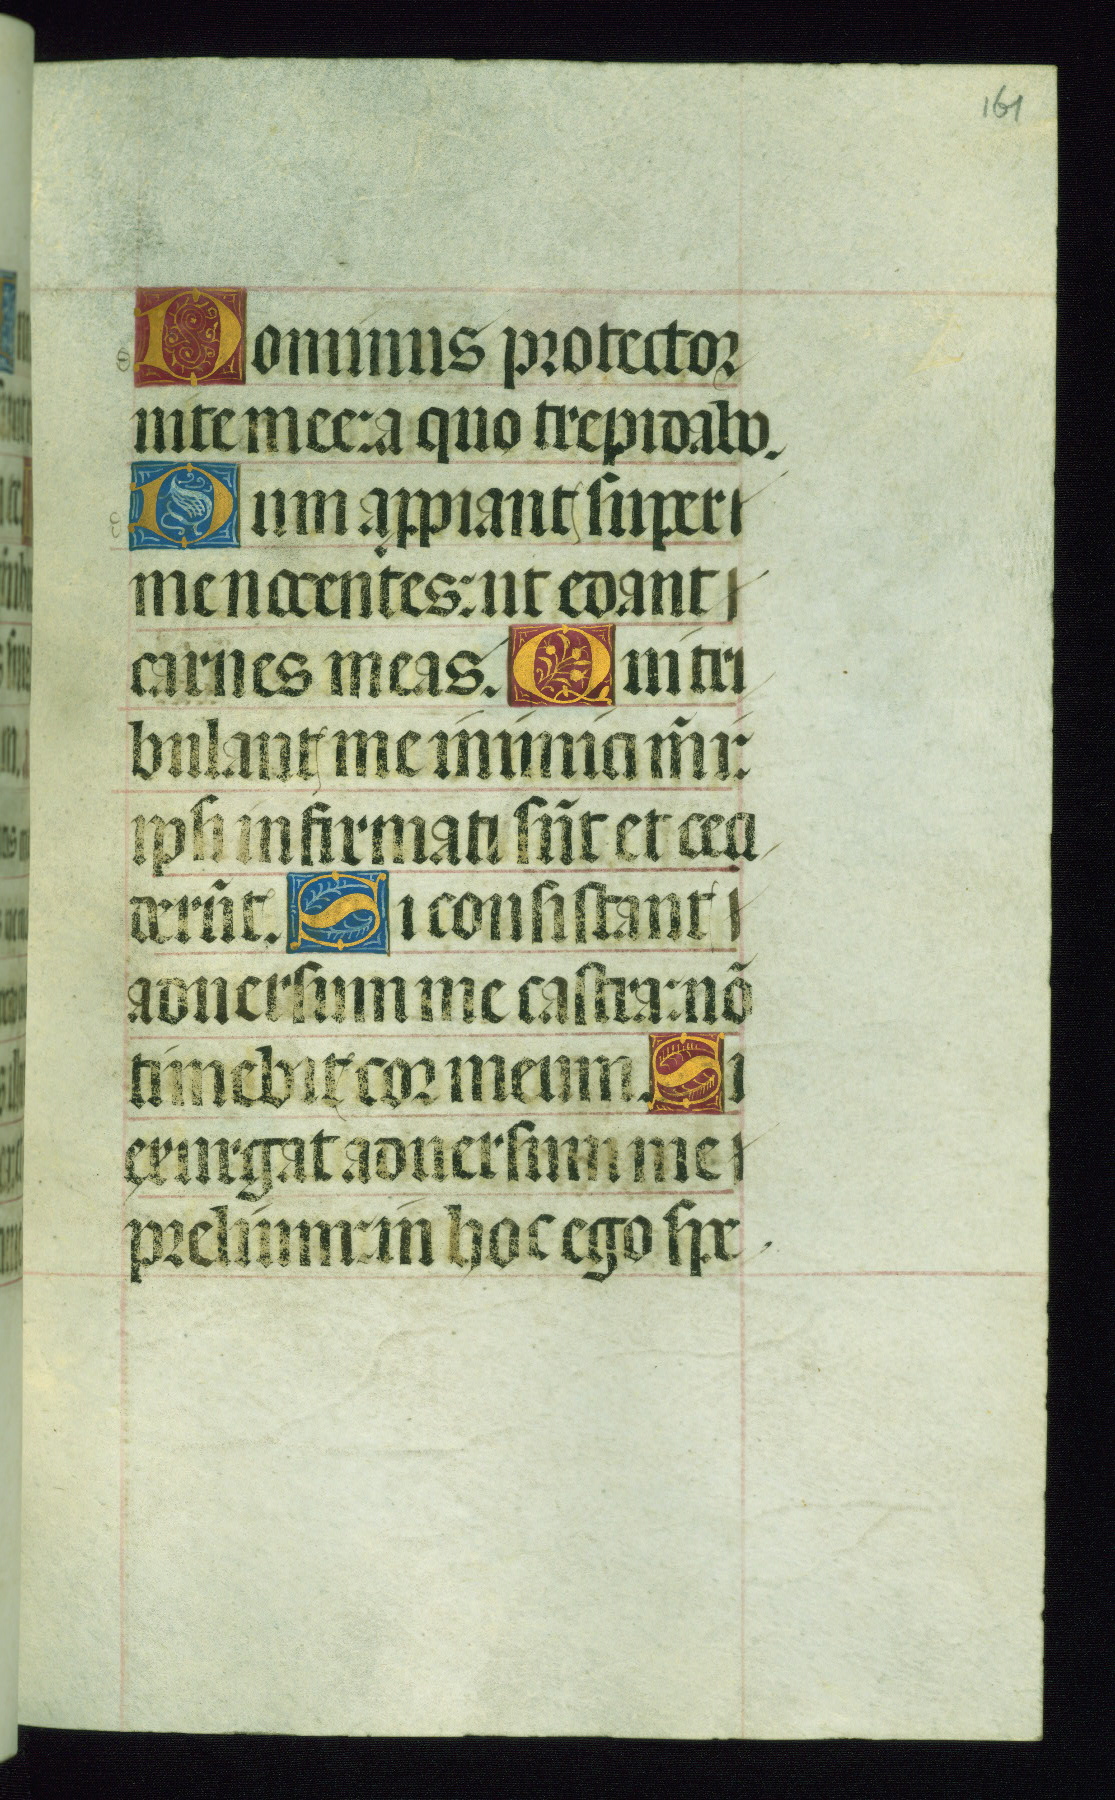 161
Dominus protector
uite mee: a quo trepidabo.
Dum appiant super
me nocentes: ut edant
carnes meas. Qui tri
bulant me inimici mĩ:
ipsi infirmati sũt et ceci
derũt. Si consistant
aduersum me castra: nõ
timebit cor meum. Si
exurgat aduersum me
prelium: in hoc ego spe